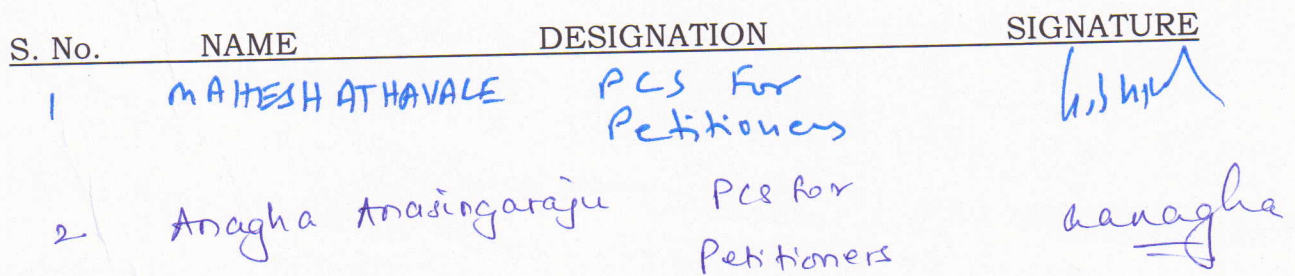 S. No. NAME DESIGNATION SIGNATURE
1 MAHESH ATHAVALE PCS For
Petitioners
2 Anagha Anasingaraju PCS for
Petitioners aanagha